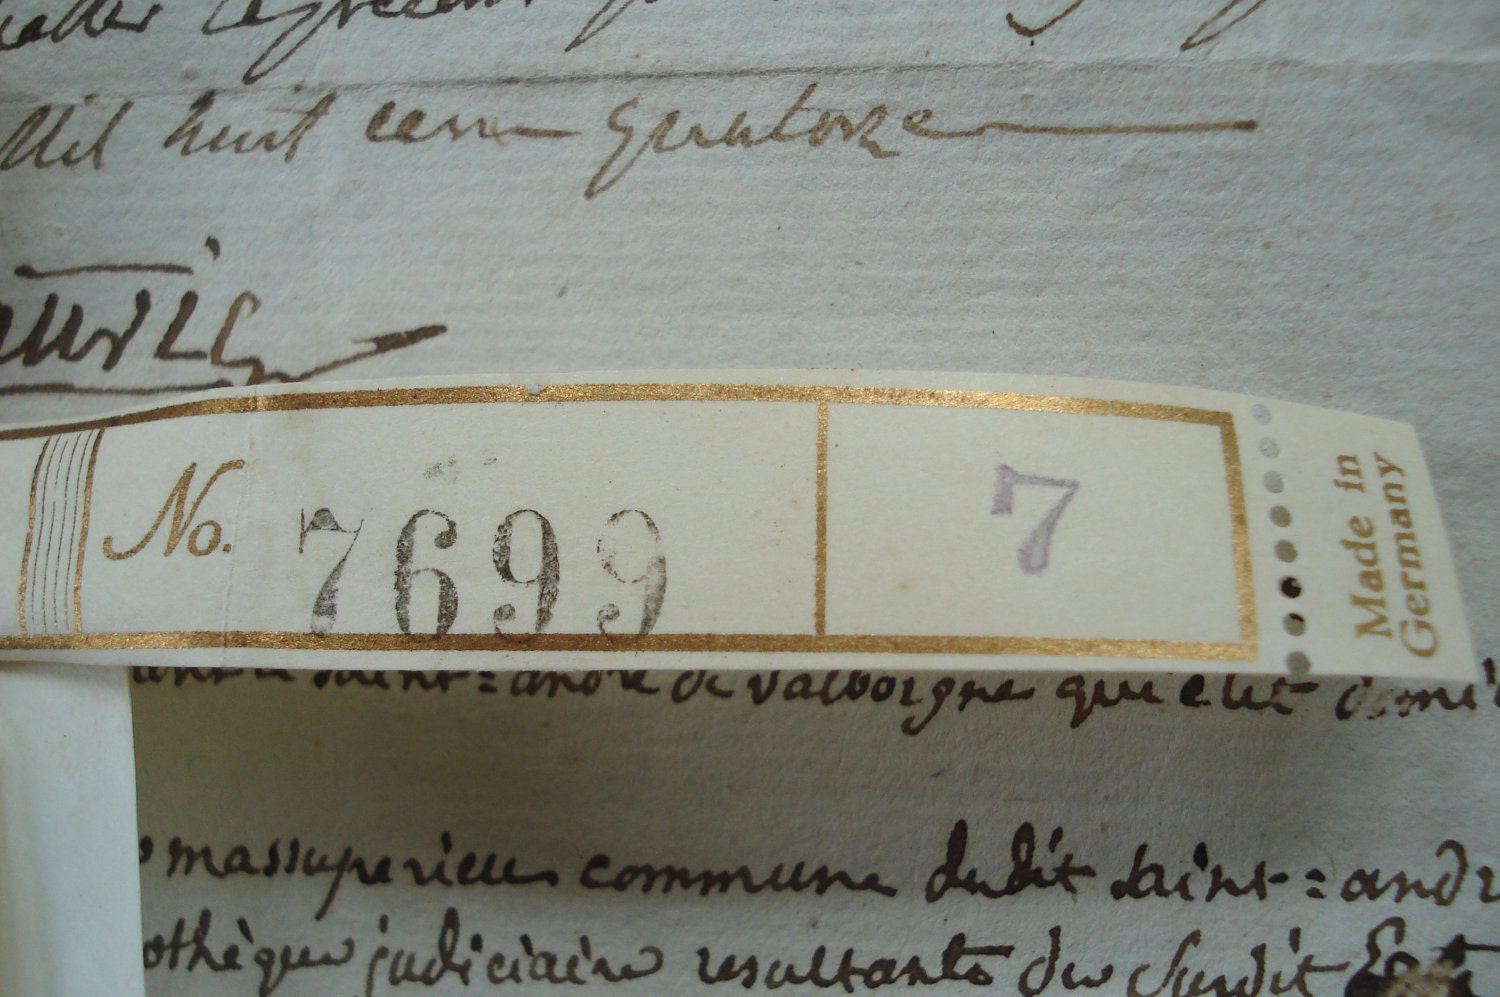 Mil huit cent quatorze
No. 7699 7
Made in
Germany
saint=andré de valborgne qui elit domi
massuperieu commune dudit saint=andr
othèque judiciaire resultante du susdit